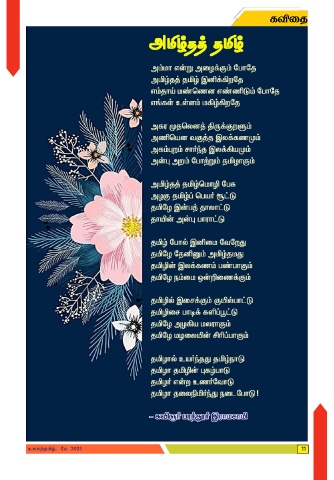 கவிதை
அமிழ்தத் தமிழ்
அம்மா என்று அழைக்கும் போதே
அமிழ்தத் தமிழ் இனிக்கிறதே
எம்தாய் மண்ணென எண்ணிடும் போதே
எங்கள் உள்ளம் மகிழ்கிறதே
அகர முதலெனத் திருக்குறளும்
அணியென வகுத்த இலக்கணமும்
அகம்புறம் சார்ந்த இலக்கியமும்
அன்பு அறம் போற்றும் தமிழாகும்
அமிழ்தத் தமிழ்மொழி பேசு
அழகு தமிழ்ப் பெயர் சூட்டு
தமிழே இன்பத் தாலாட்டு
தாயின் அன்பு பாராட்டு
தமிழ் போல் இனிமை வேறேது
தமிழே தேனினும் அமிழ்தமது
தமிழின் இலக்கணம் பண்பாகும்
தமிழே நம்மை ஒன்றிணைக்கும்
தமிழில் இசைக்கும் குயில்பாட்டு
தமிழிசை பாடிக் களிப்பூட்டு
தமிழே அழகிய மலராகும்
தமிழே மழலையின் சிரிப்பாகும்
தமிழால் உயர்ந்தது தமிழ்நாடு
தமிழா தமிழின் புகழ்பாடு
தமிழர் என்ற உணர்வோடு
தமிழா தலைநிமிர்ந்து நடைபோடு!
- கவிஞர் இராமசாமி
உலகத்தமிழ், மே 2021
11